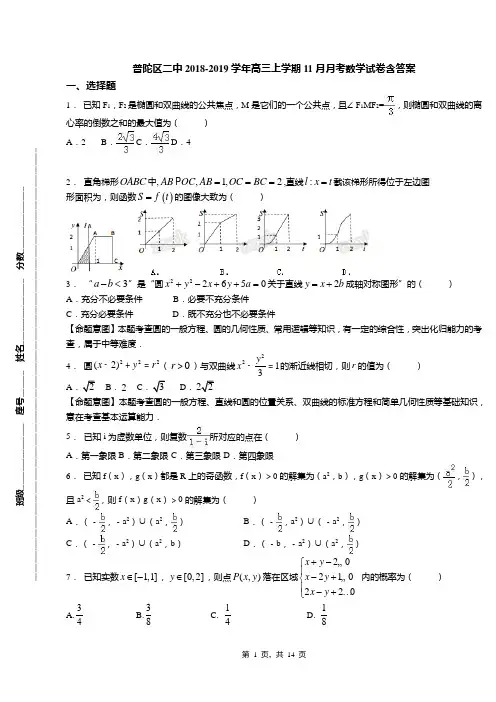 普陀区二中2018-2019学年高三上学期11月月考数学试卷含答案
一、选择题
1. 已知F₁,F₂是椭圆和双曲线的公共焦点,M是它们的一个公共点,且∠F₁MF₂=π/3,则椭圆和双曲线的离
心率的倒数之和的最大值为( )
A.2 B.2√3/3 C.4√3/3 D.4
2. 直角梯形OABC中,AB P OC, AB = 1, OC = BC = 2,直线l : x = t截该梯形所得位于左边图
形面积为,则函数S = f(t)的图像大致为( )
3. “a - b < 3”是“圆x² + y² - 2x + 6y + 5a = 0关于直线y = x + 2b成轴对称图形”的( )
A.充分不必要条件 B.必要不充分条件
C.充分必要条件 D.既不充分也不必要条件
【命题意图】本题考查圆的一般方程、圆的几何性质、常用逻辑等知识,有一定的综合性,突出化归能力的考
查,属于中等难度.
4. 圆(x - 2)² + y² = r²(r > 0)与双曲线x² - y²/3 = 1的渐近线相切,则r的值为( )
A.√2 B.2 C.√3 D.2√2
【命题意图】本题考查圆的一般方程、直线和圆的位置关系、双曲线的标准方程和简单几何性质等基础知识,
意在考查基本运算能力.
5. 已知i为虚数单位,则复数2/(1-i)所对应的点在( )
A.第一象限 B.第二象限 C.第三象限 D.第四象限
6. 已知f(x),g(x)都是R上的奇函数,f(x)>0的解集为(a²,b),g(x)>0的解集为(a²/2,b/2),
且a²<b/2,则f(x)g(x)>0的解集为( )
A.(-b/2,-a²)∪(a²,b/2) B.(-b/2,a²)∪(-a²,b/2)
C.(-b/2,-a²)∪(a²,b) D.(-b,-a²)∪(a²,b/2)
7. 已知实数x∈[-1,1],y∈[0,2],则点P(x, y)落在区域{x + y - 2 ,, 0 x - 2y + 1 ,, 0 2x - y + 2 .. 0 内的概率为( )
A.3/4 B.3/8 C.1/4 D.1/8
班级 座号 姓名 分数
第 1 页,共 14 页